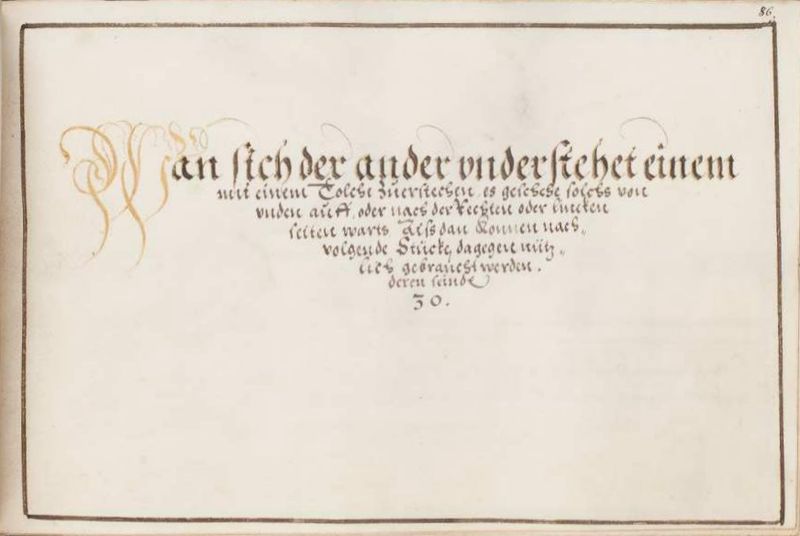 86.
Wan sich der ander vnderstehet einem
mit einem Tolchē Zuerstechen, es geschehe solchs von
vnden auff, oder nach der Rechten oder lincken
seiten warts Alsdan Konnen nach„
volgende Stücke, dagegen nütz„
lich gebraucht werden.
deren seindt
30.